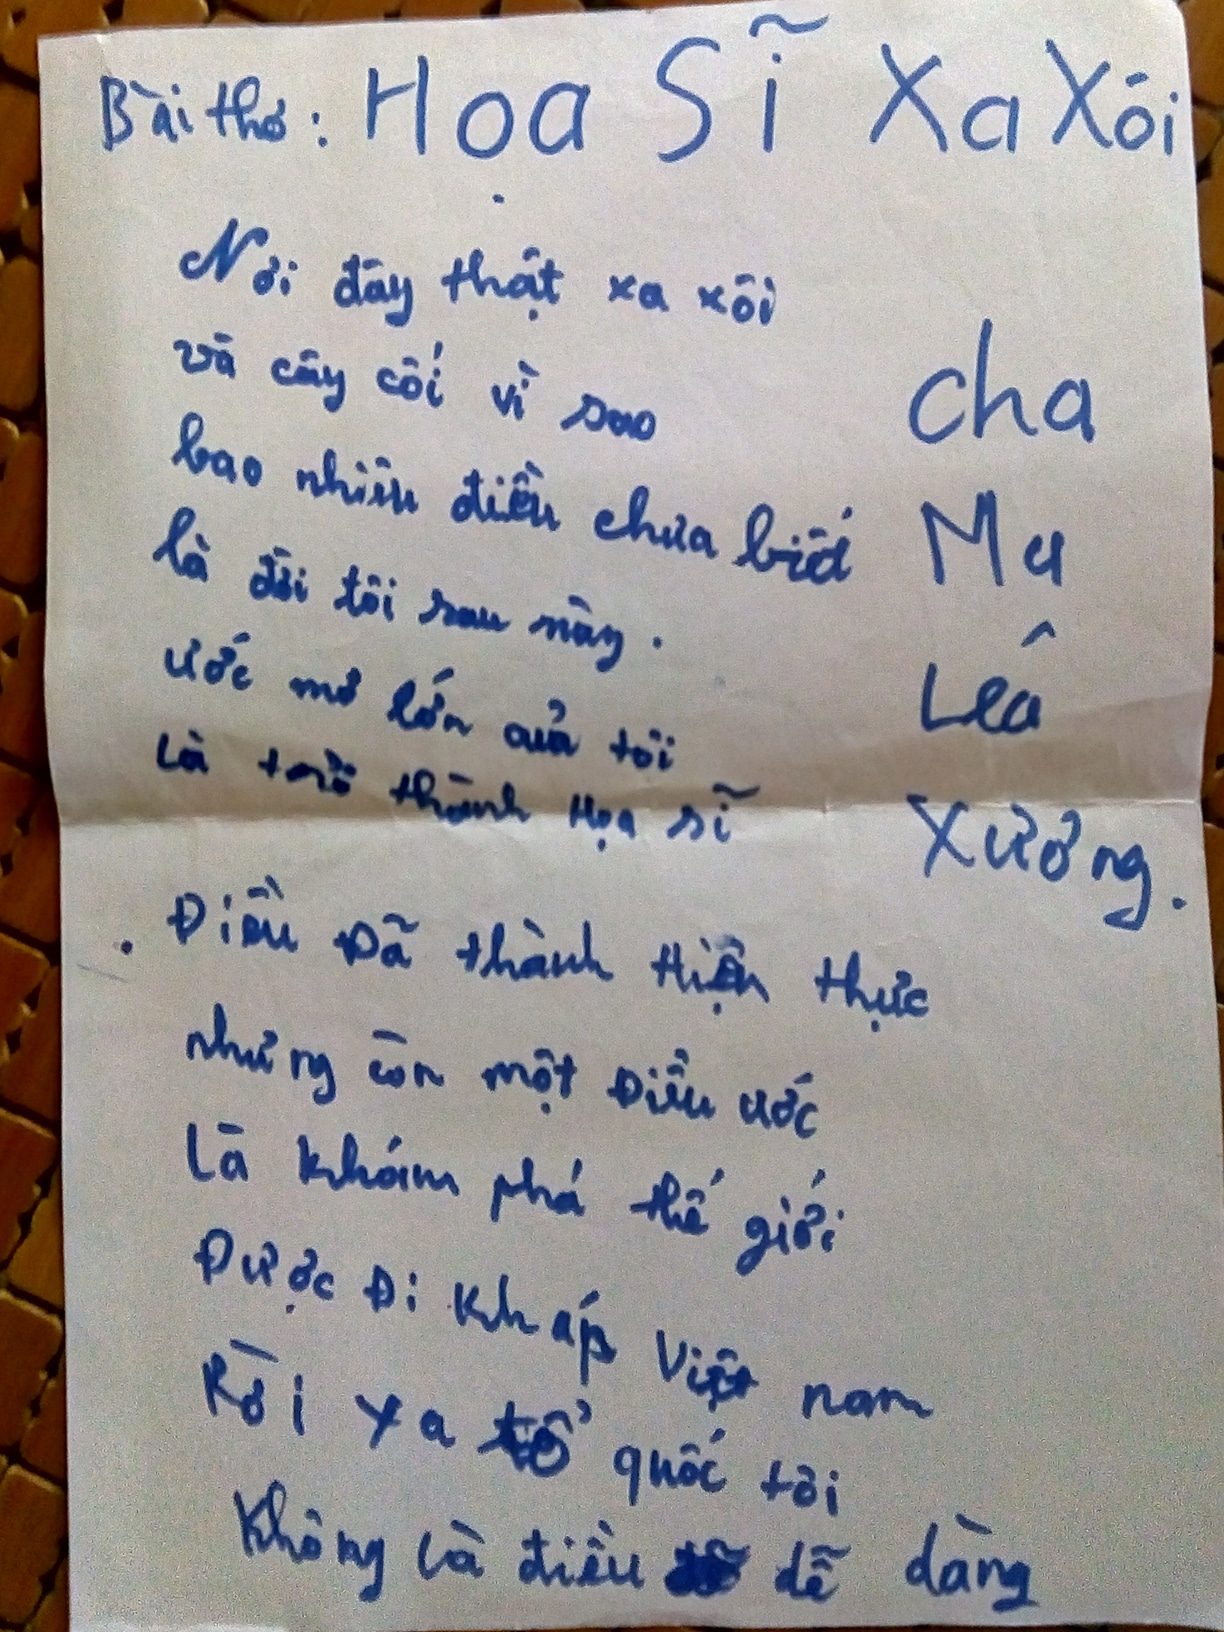 Bài thơ: Họa Sĩ Xa Xôi
Nơi đây thật xa xôi
và cây cối vì sao
bao nhiêu điều chưa biết
là đời tôi sau này.
ước mơ lớn của tôi
Là trở thành Họa sĩ
Điều Đã thành Hiện thực
nhưng còn một Điều ước
Là Khám phá thế giới
Được Đi Khắp Việt nam
Rời xa tổ quốc tôi
Không là điều dễ dàng
cha
Mu
Lêá
Xưởng.